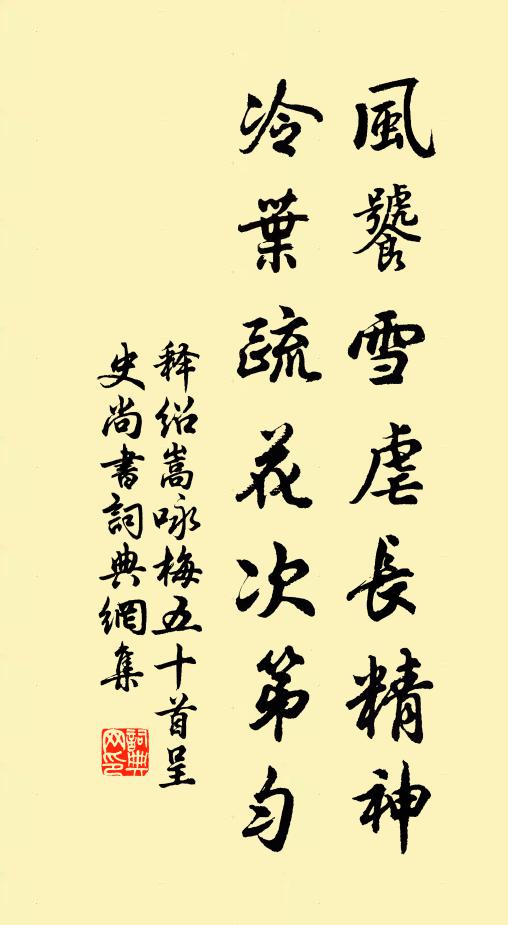 風饕雪虐長精神
冷葉疏花次第勻
释绍嵩咏梅五十首呈
史尚書詞典網集
詞典
网印